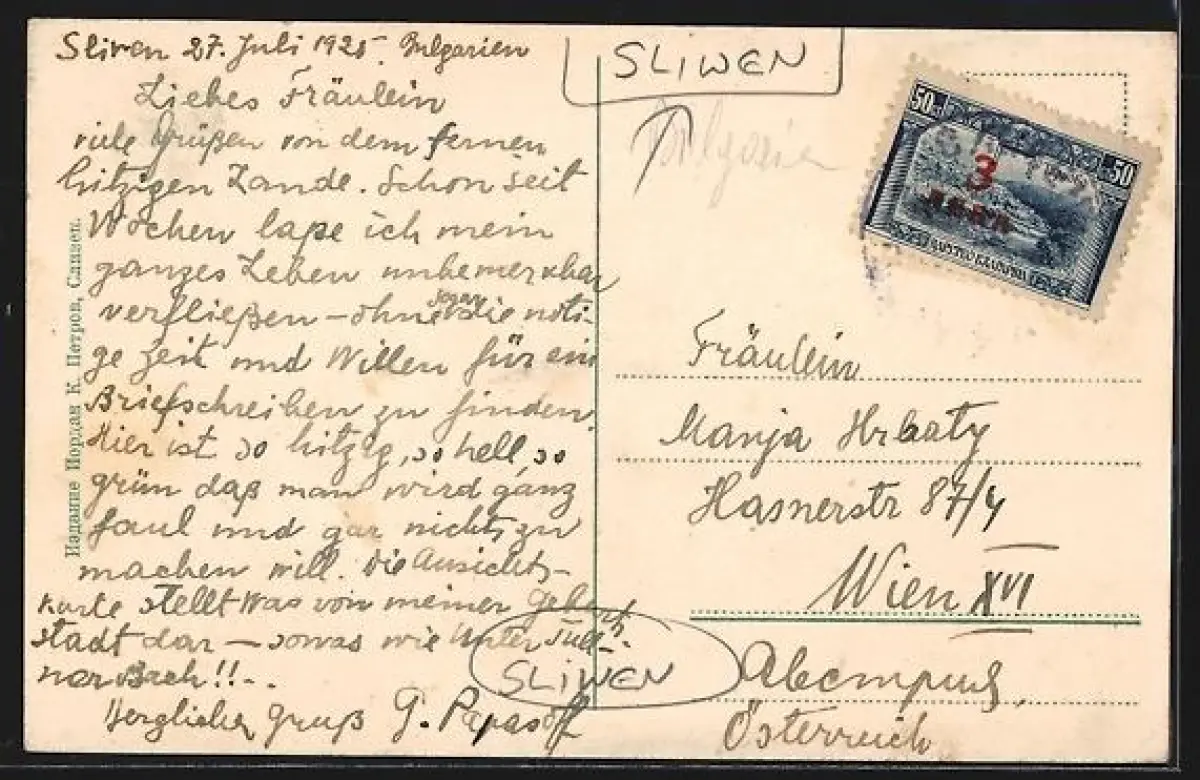 Sliven 27. Juli 1925. Bulgarien
Liebes Fräulein
viele Grüßen von dem fernen
hitzigen Lande. Schon seit
Wochen laße ich mein
ganzes Leben unbemerkbar
verfließen – ohne sogar die noti-
ge Zeit und Willen für ein
Briefschreiben zu finden.
Hier ist so hitzig, so hell, so
grün daß man wird ganz
faul und gar nichts zu
machen will. Die Ansichts-
karte stellt was von meiner Geburts-
stadt dar – sowas wie Unter Tull-
nerBach!!-.
Herzlicher Gruß G. Papasoff
Издание Йордан К. Петров, Сливен.
SLIWEN
Bulgarien
50 50
3
ЛЕВА
Fräulein
Manja Hrbaty
Hasnerstr 87/4
Wien XVI
SLIWEN
Австрия
Österreich